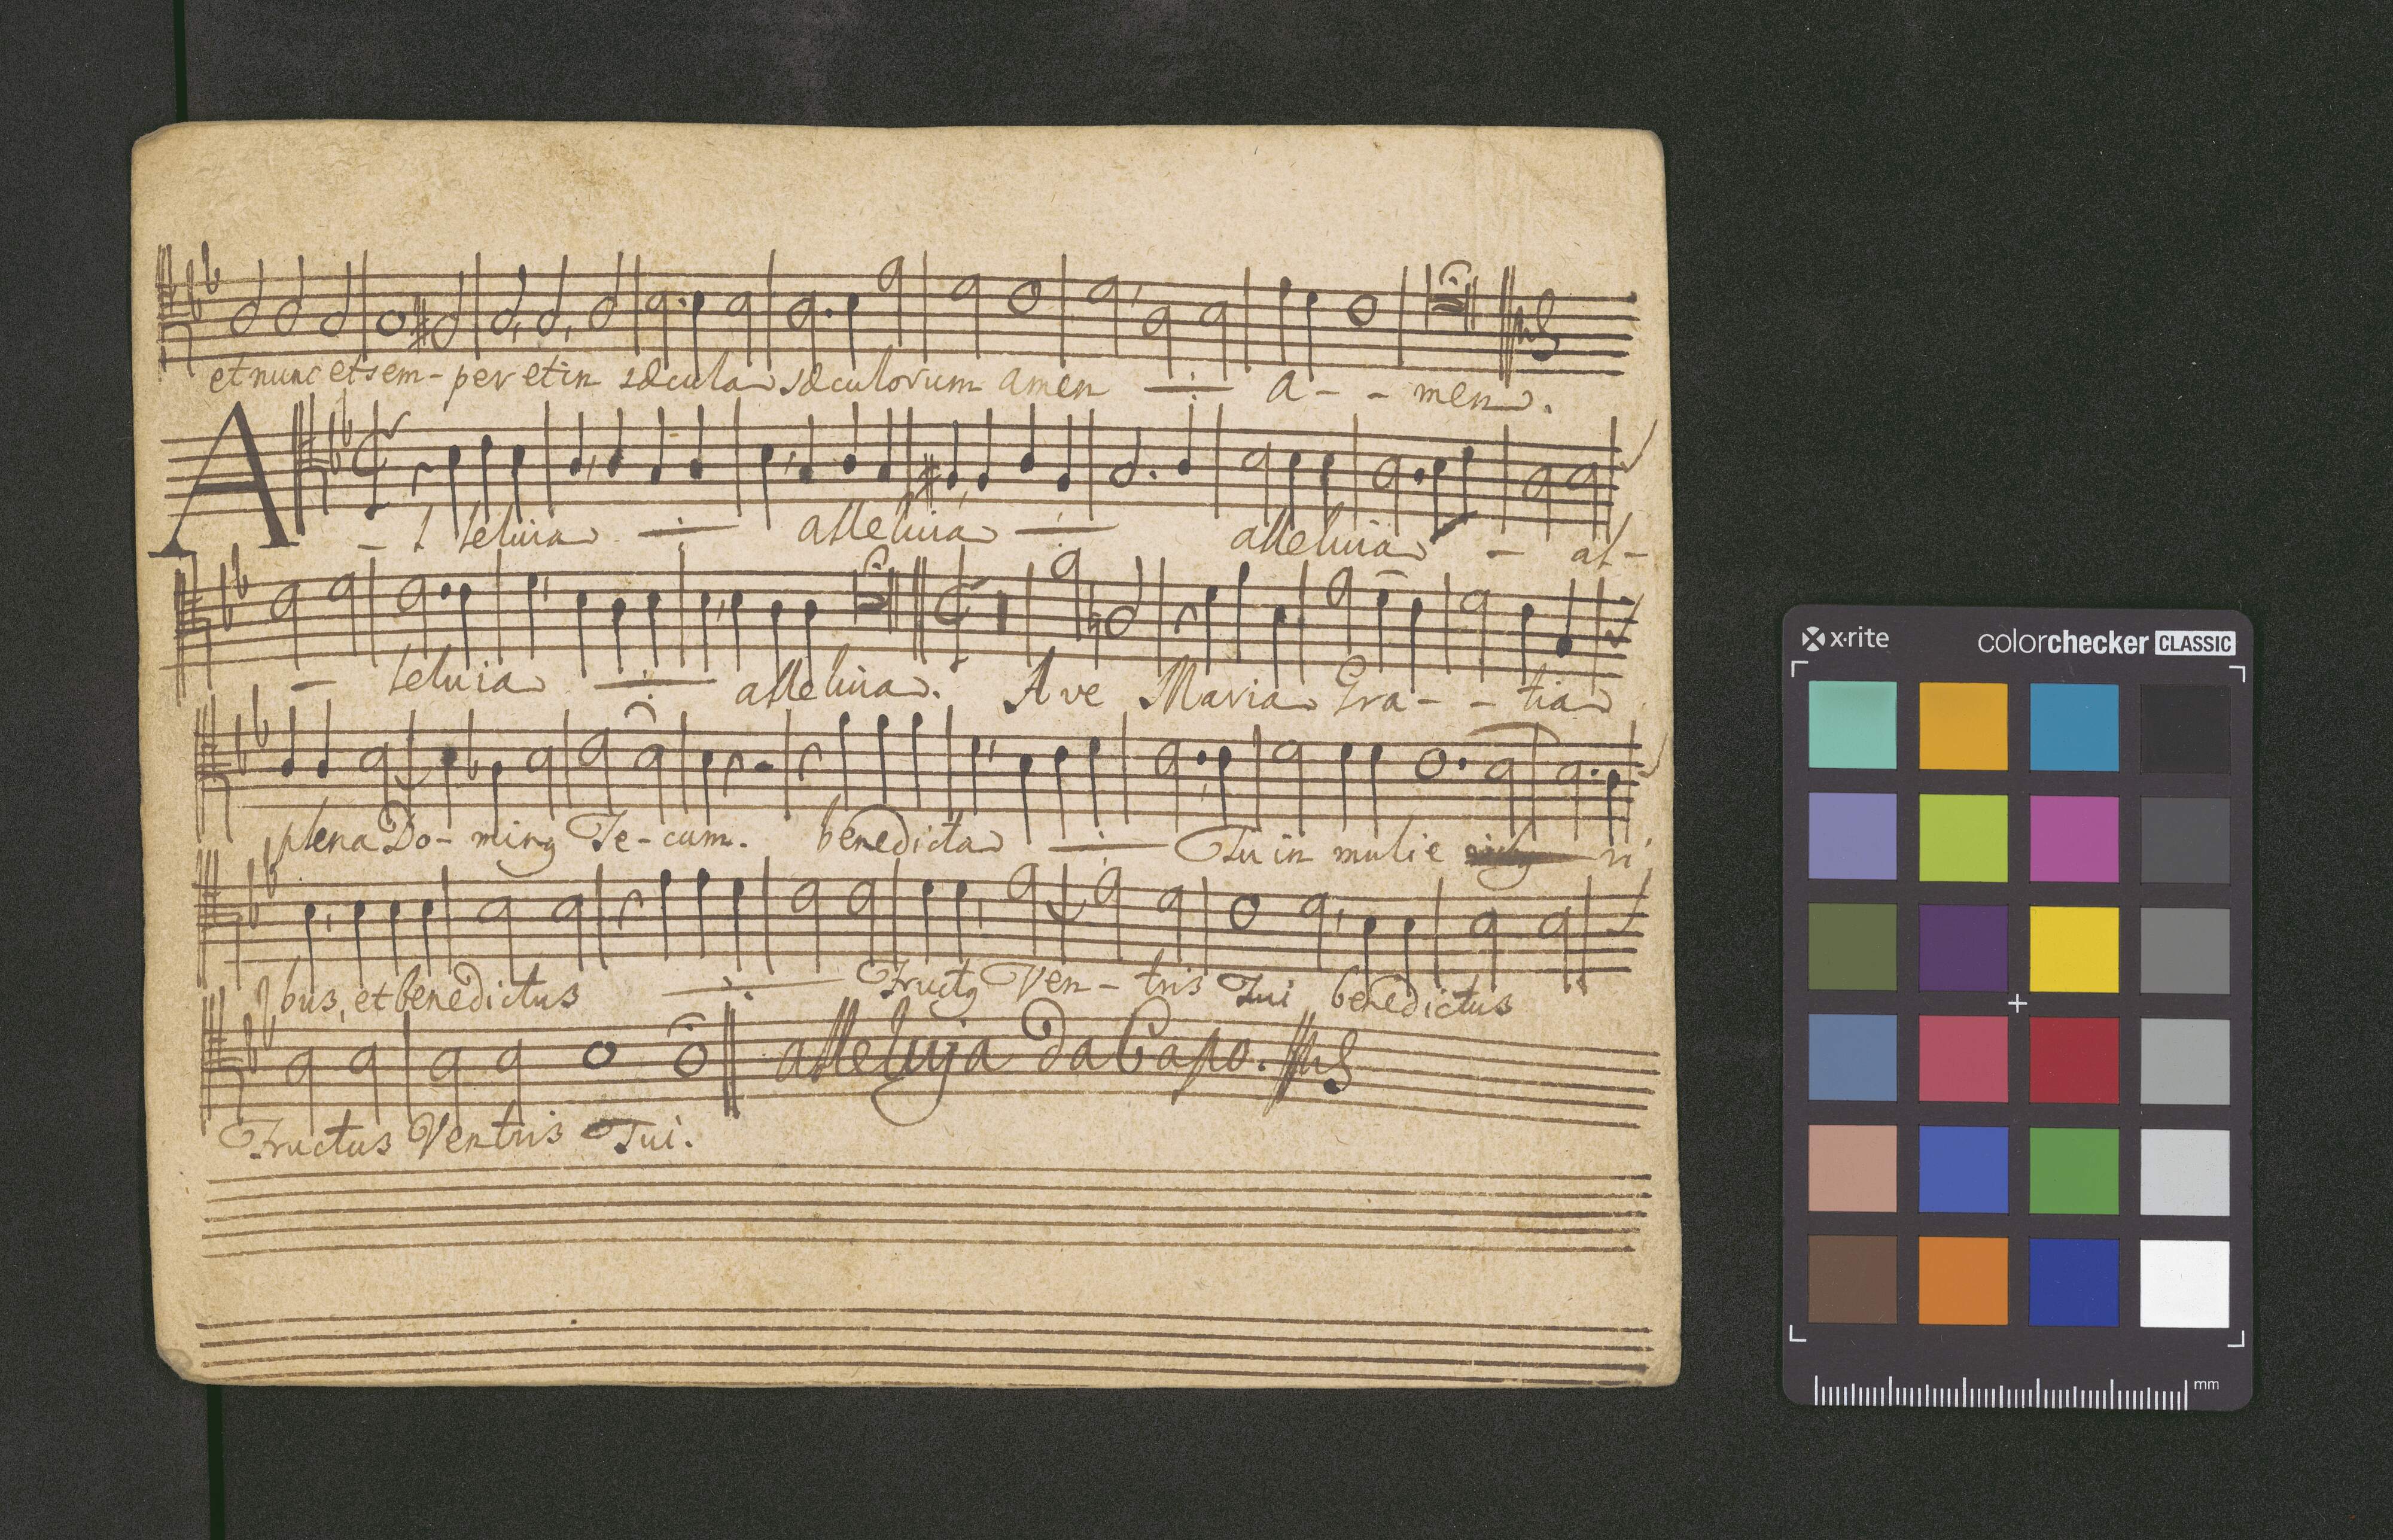 et nunc et sem- per et in sæcula sæculorum amen a - - men.
A - l leluia alleluia alleluia - al-
- leluia alleluia. Ave Maria Gra - - tia
plena Do- ming Te-cum. benedicta Tu in mulie ri
bus, et benedictus Fructg Ven - tris Tui benedictus
alleluja Da Capo.
Fructus Ventris Tui.
x·rite colorchecker CLASSIC
mm